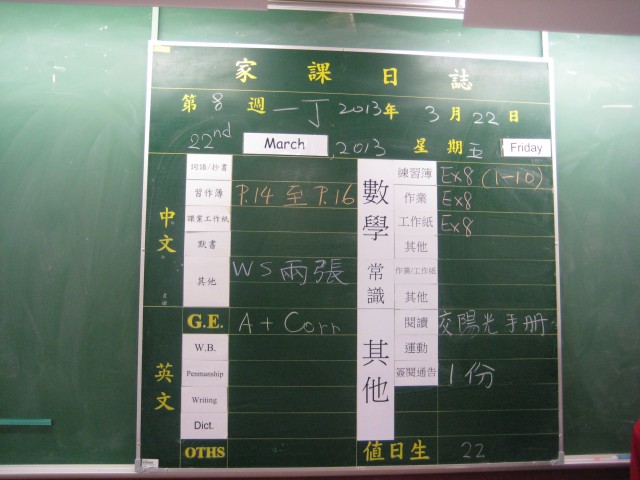 家課日誌
第 8 週 一丁 2013年 3月22日
22nd March , 2013 星期五 Friday
中文
詞語/抄書
習作簿 P.14 至 P.16
課業工作紙
默書
其他 WS 兩張
英文
G.E. A + Corr
W.B.
Penmanship
Writing
Dict.
OTHS
數學
練習簿 Ex8 (1-10)
作業 Ex8
工作紙 Ex8
其他
常識
作業/工作紙
其他
其他
閱讀 交陽光手册
運動
簽閱通告 1份
值日生 22